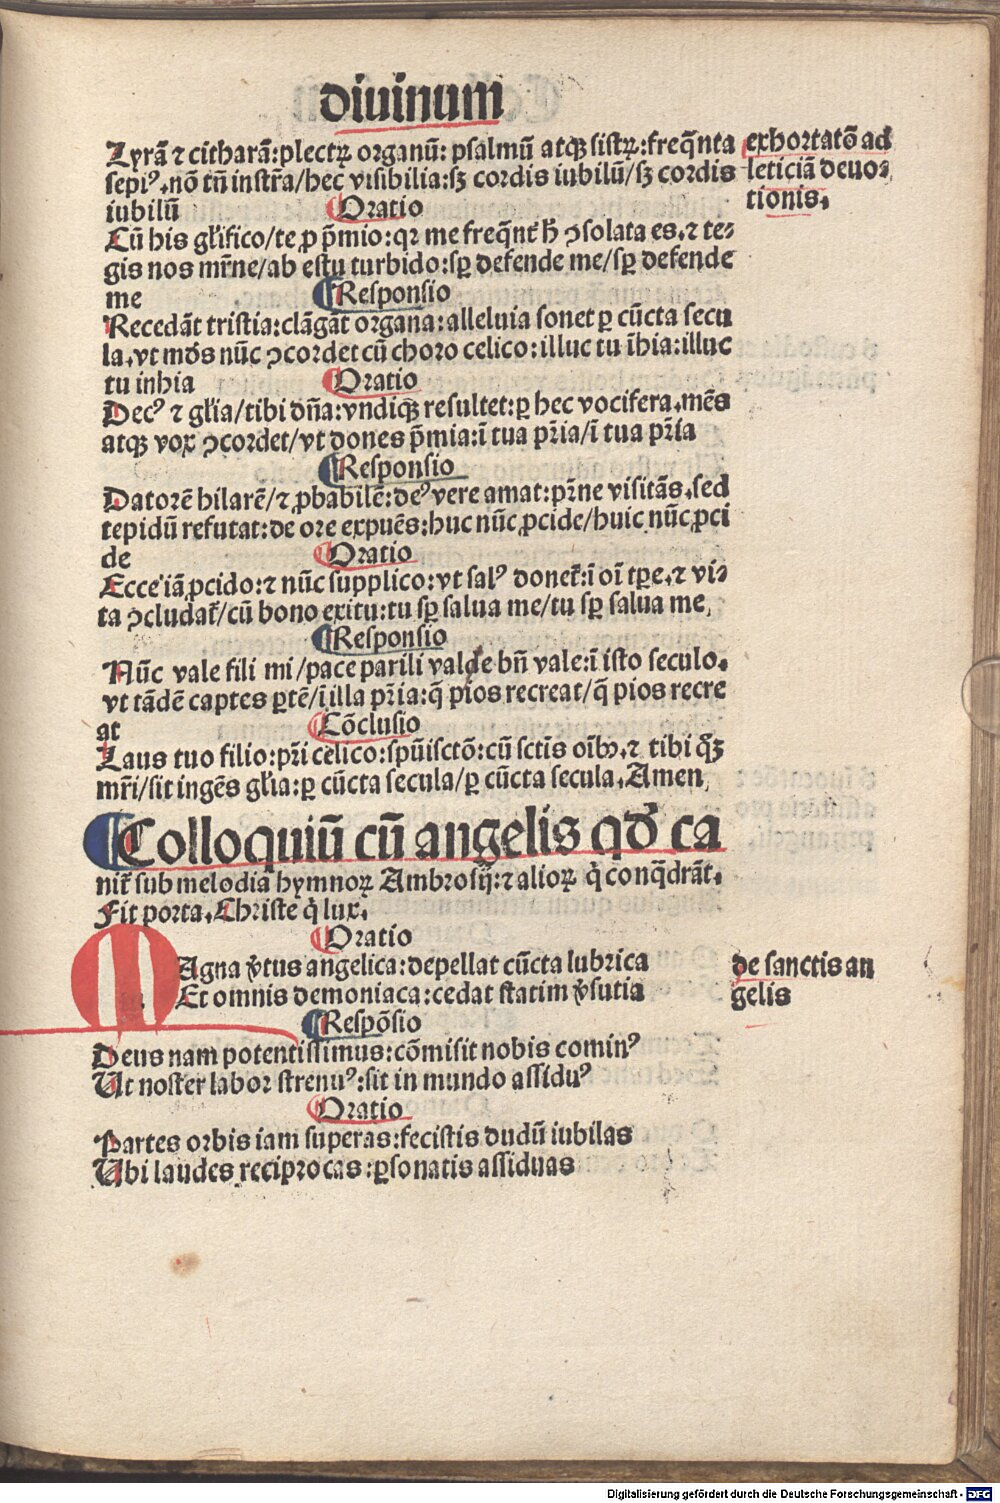 diuinum
Lyrā ⁊ citharā:plectꝝ organū: psalmū atqꝫ sistꝝ:freq̄nta
sepiꝰ.nō tn̄ instr̄a/hec visibilia:sꝫ cordis iubilū/sꝫ cordis
iubilū
exhortatō ad
leticiā deuo⸗
tionis.
Oratio
Cū his gl̄ifico/te ꝓ p̄mio:qꝛ me freq̄nt̄ h̄ ꝯsolata es.⁊ te⸗
gis nos mr̄ne/ab estu turbido:sꝑ defende me/sꝑ defende
me
Responsio
Recedāt tristia:clāgāt organa:alleluia sonet ꝑ cūcta secu
la.vt mōs nūc ꝯcordet cū choro celico:illuc tu īhia:illuc
tu inhia
Oratio
Decꝰ ⁊ gl̄ia/tibi dn̄a:vndiqꝫ resultet:ꝑ hec vocifera.mēs
atqꝫ vox ꝯcordet/vt dones p̄mia:ī tua pr̄ia/ī tua pr̄ia
Responsio
Datorē hilarē/⁊ ꝓbabilē:deꝰ vere amat:pr̄ne visitās.sed
tepidū refutat:de ore expuēs:huc nūc ꝓcide/huic nūc ꝓci
de
Oratio
Ecce iā ꝓcido:⁊ nūc supplico:vt salꝰ donet̄:ī oī tꝑe.⁊ vi⸗
ta ꝯcludat̄/cū bono exitu:tu sꝑ salua me/tu sꝑ salua me.
Responsio
Nūc vale fili mi/pace parili valde bn̄ vale:ī isto seculo.
vt tādē captes ꝑtē/ī illa pr̄ia:q̄ pios recreat/q̄ pios recre
at
Cōclusio
Laus tuo filio:pr̄i celico:spūisctō:cū sctīs oībꝰ.⁊ tibi qꝫ
mr̄i/sit ingēs gl̄ia:ꝑ cūcta secula/ꝑ cūcta secula.Amen.
Colloquiū cū angelis qd̄ ca
nit̄ sub melodia hymnoꝝ Ambrosij:⁊ alioꝝ q̄ conq̄drāt.
Fit porta.Christe q̄ lux.
Oratio
MAgna v̄tus angelica:depellat cūcta lubrica
Et omnis demoniaca:cedat statim v̄sutia
de sanctis an
gelis
Respōsio
Deus nam potentissimus:cōmisit nobis cominꝰ
Ut noster labor strenuꝰ:sit in mundo assiduꝰ
Oratio
Partes orbis iam superas:fecistis dudū iubilas
Ubi laudes reciprocas:ꝑsonatis assiduas
Digitalisierung gefördert durch die Deutsche Forschungsgemeinschaft - DFG